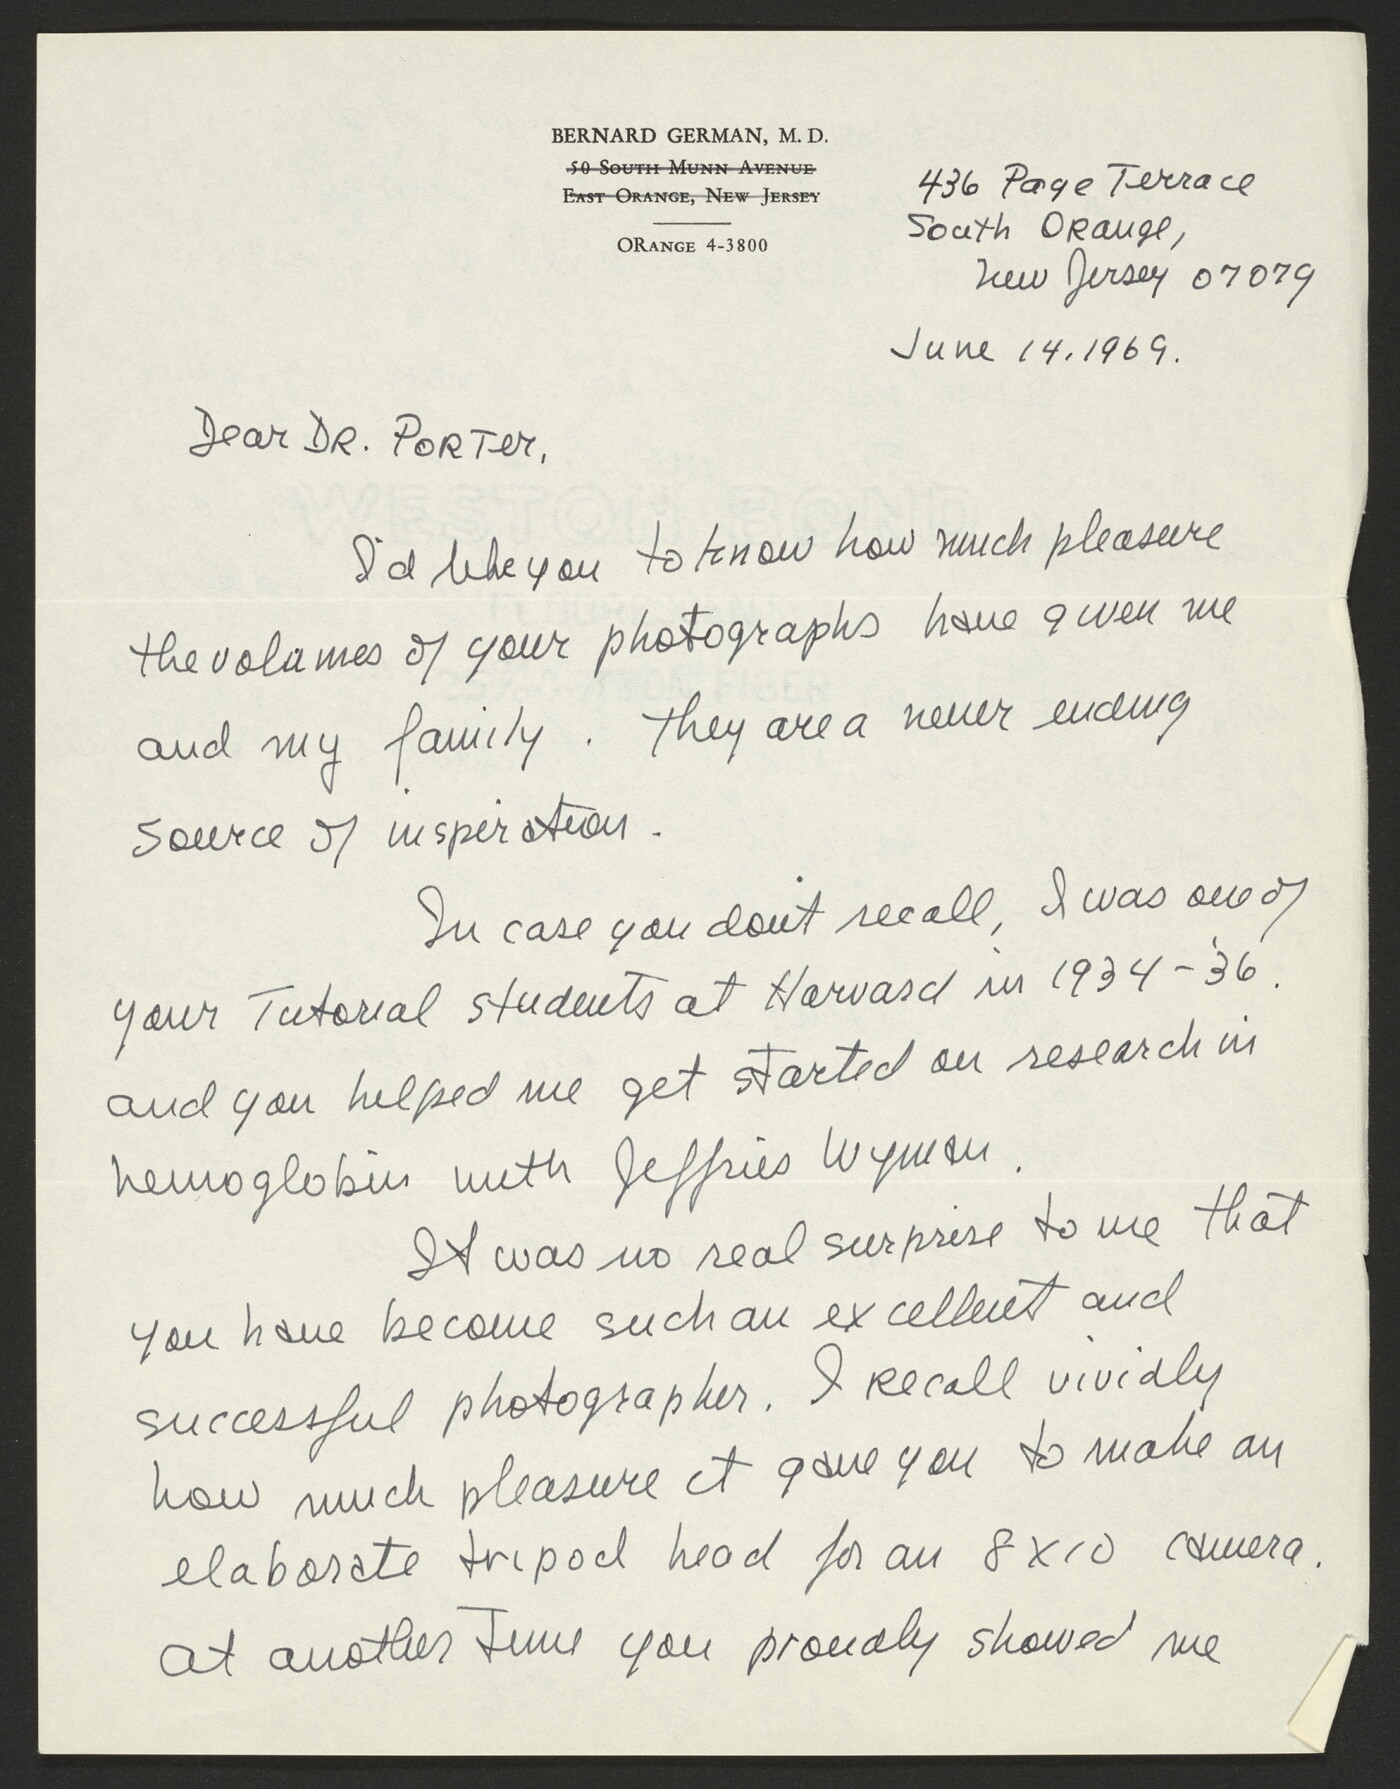 BERNARD GERMAN, M. D.
50 South Munn Avenue
East Orange, New Jersey
ORange 4-3800
436 Page Terrace
South Orange,
New Jersey 07079
June 14, 1969.
Dear DR. PORTER,
I'd like you to know how much pleasure
the volumes of your photographs have given me
and my family. They are a never ending
source of inspiration.
In case you don't recall, I was one of
your Tutorial students at Harvard in 1934-'36.
and you helped me get started on research in
hemoglobin with Jeffries Wyman.
It was no real surprise to me that
you have become such an excellent and
successful photographer. I recall vividly
how much pleasure it gave you to make an
elaborate tripod head for an 8x10 camera.
At another time you proudly showed me